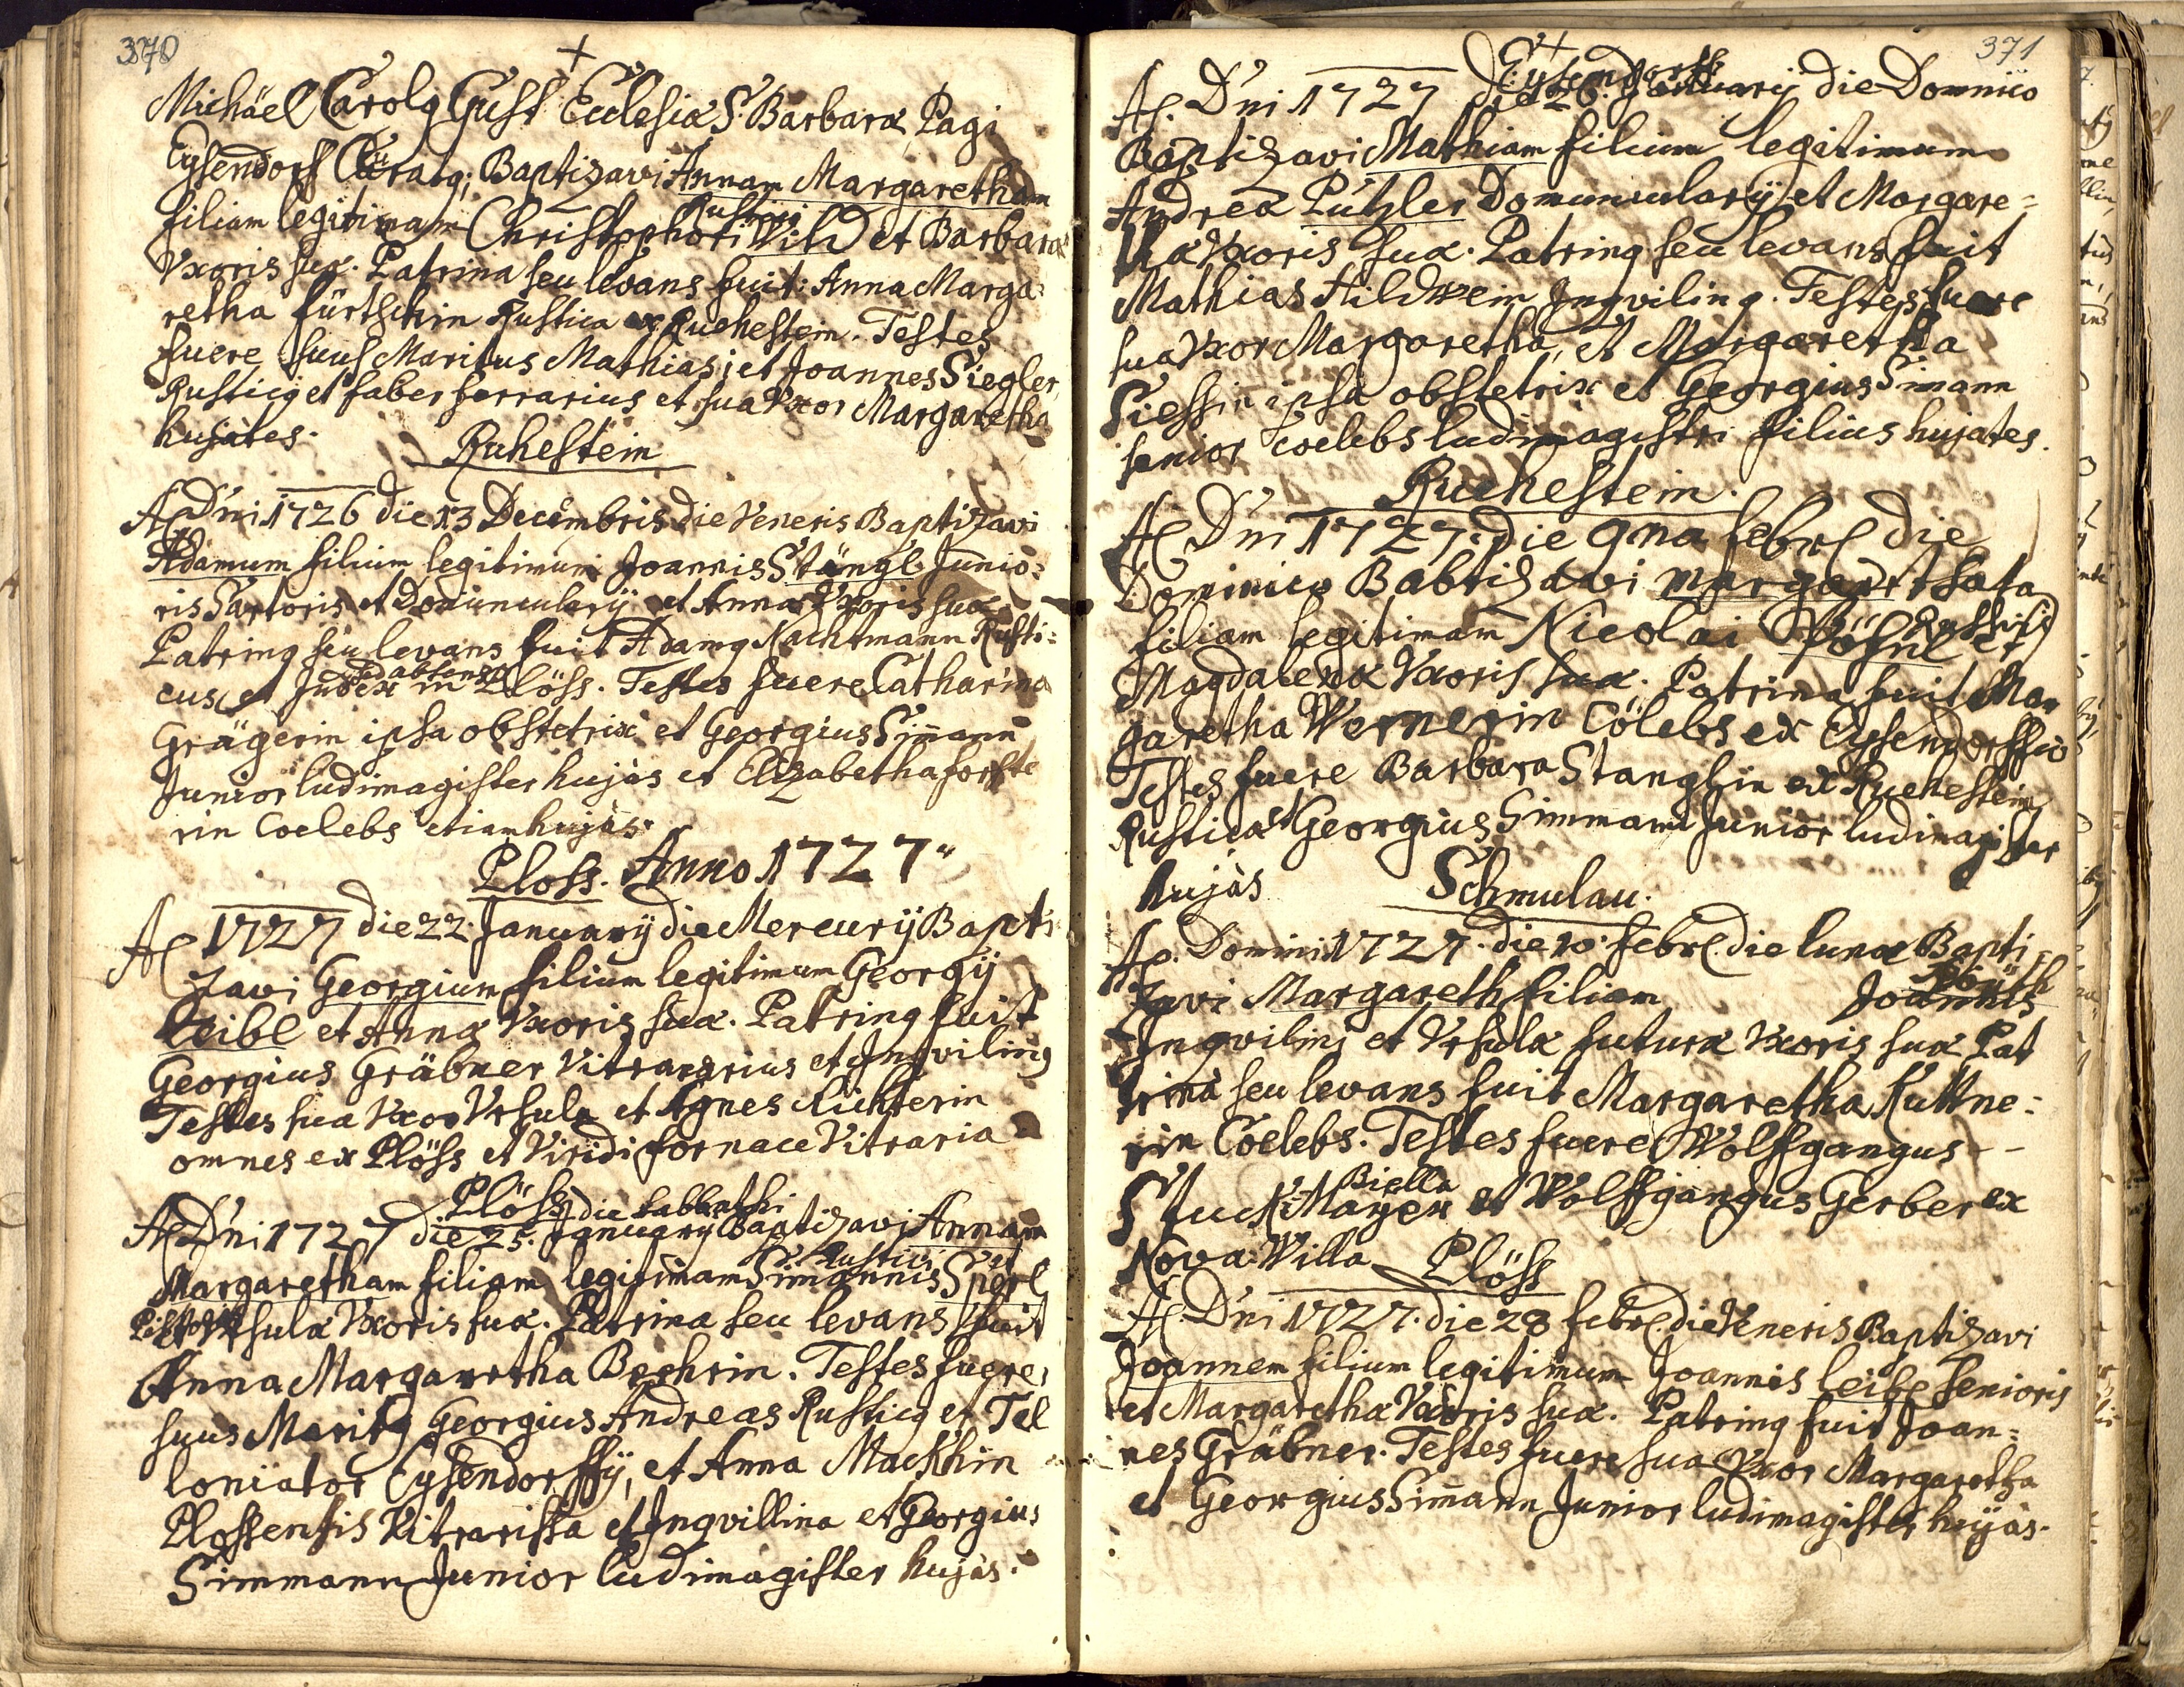 370
†
Michäel Carolq Gust Ecclesiæ S. Barbaræ Pagi
Eysendorf Curatq; Baptizavi Annam Margaretham
Rustici
filiam legitimam Christophori Wild et Barbaræ
Vxoris suæ. Patrina seu levans fuit: Anna Marga=
retha fürtschin Rustica ex Ruehestein. Testes
fuere suus Maritus Mathias; et Joannes Siegler,
Rusticq et faber ferrarius et sua Vxor Margaretha
hujates.
Ruhestein
A Dni 1726 die 13 Decembris die Veneris Baptizavi
Adamum filium legitimum Joannis Stängl Junio=
ris Sartoris et Domuncularij et Annæ Vxoris suæ
Patrinq seu levans fuit Adamq Nachtmann Rusti=
cus et Judex in Plöss. Testes fuere Catharina
Grägerin ipsa obstetrix et Georgius Simann
Junior ludimagister hujàs et Elizabetha forste
rin Coelebs etiam hujàs.
Ploss. Anno 1727
A 1727 die 22 Januarij die Mercurij Bapti
zavi Georgium filium legitimum Georgij
Leibl et Annæ Vxoris suæ. Patrinq fuit
Georgius Gräbner Vitrararius et Inqvilinq
Testes sua Vxor Vrsula et Agnes Richterin
omnes ex Plöss et Viridi fornace Vitraria
Plöss
die Sabbathi
A Dni 1727 die 25. Januarij Baptizavi Annam
Rustici
Margaretham filiam legitimam Simannis Sperl
et Vrsulæ Vxoris suæ. Patrina seu levans fuit
Anna Margaretha Bechrin. Testes fuere
suus Maritq Georgius Andreas Rusticq et Tel
loniator Eysendorffij, et Anna Mackhin
Plossensis Vitrarissa et Inqvillina et Georgius
Simmann Junior ludimagister hujàs.
371
†
Eysendorff
A. Dni 1727 die 26. Januarij die Dominico
Baptizavi Mathiam filium legitimum
Andreæ Putzler Domuncularij et Margare=
thæ Vxoris suæ. Patrinq seu levans fuit
Mathias Hildwein Inqvilinq. Testes fuere
sua Vxor Margaretha, et Margaretha
Siessin ipsa obstetrix et Georgius Simann
senior coelebs ludimagistri filius hujates.
Ruehestein.
A Dni 1727. die 9na febr die
Dominico Babtizavi Margaretha
Rustici
filiam legitimam Nicolai Pösnl et
Magdalenæ Vxoris suæ. Patrina fuit Mar
garetha Wernerin Cölebs ex Eysendorffio
Testes fuere Barbara Stanglin ex Ruehestein
Rustica et Georgius Simmann Junior ludimagister
hujàs
Schmulau.
A. Domini 1727. die 10. febr. die lunæ Bapti=
zavi Margareth filiam Joannis
Inqvilini et Vrsulæ futuræ Vxoris suæ Pat
trina seu levans fuit Margaretha Kuttne=
rin Coelebs. Testes fuere Wolfgangus --
Biella
Stuckh Mayer et Wolffgangus Gerber ex
Nova Villa
Plöss
A. Dni 1727. die 28 febr. die Veneris Baptizavi
Joannem filium legitimum Joannis Leibl senioris
et Margarethæ Vxoris suæ. Patrinq fuit Joan=
nes Gräbner. Testes fuere sua Vxor Margaretha
et Georgius Simann Junior ludimagister hujàs.